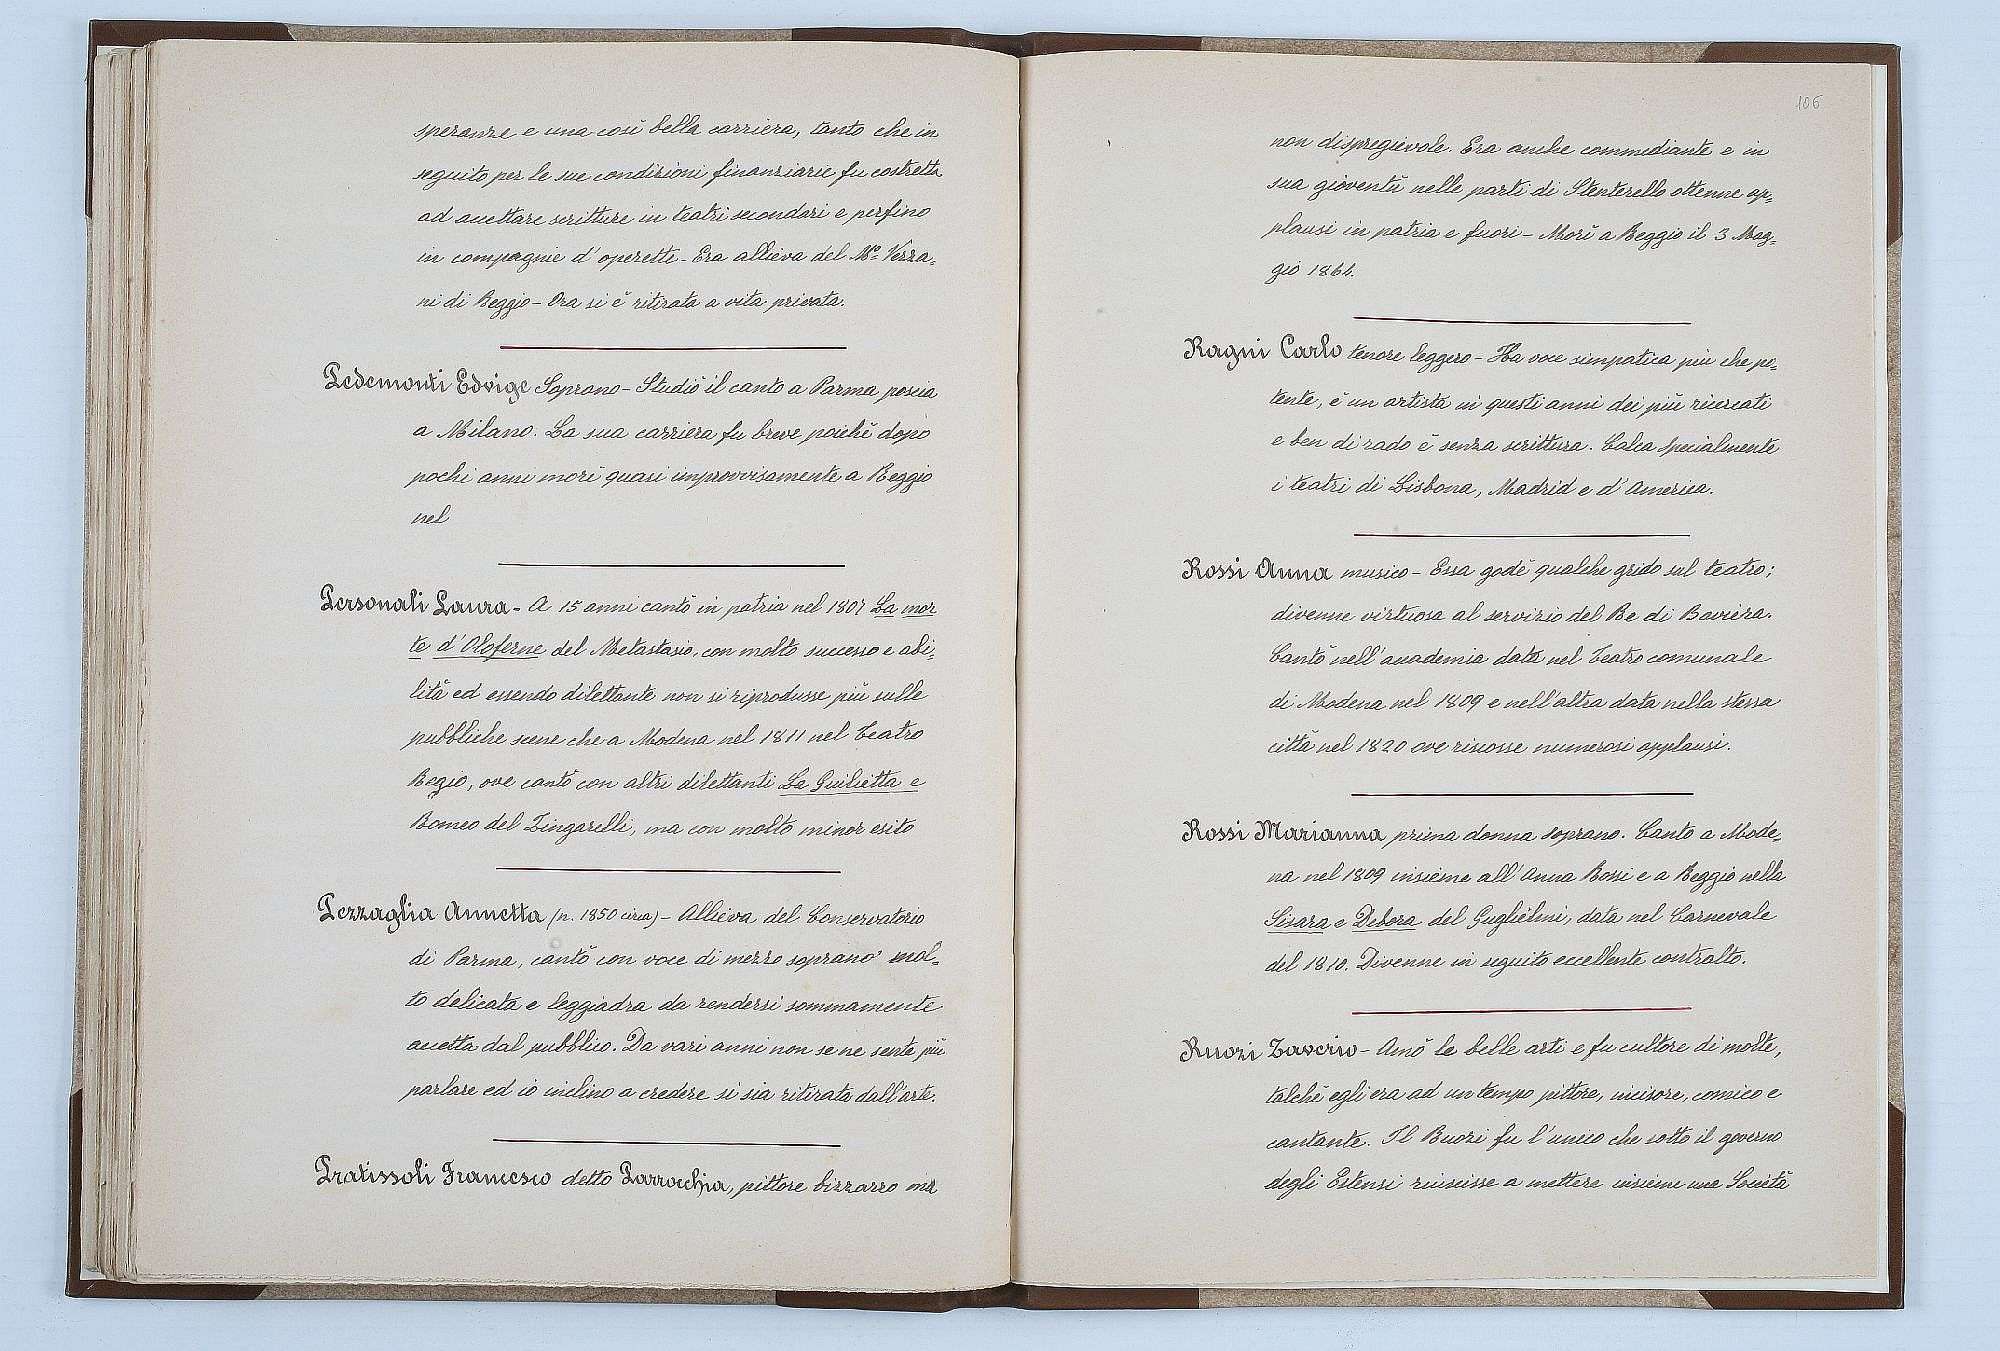 speranze e una così bella carriera, tanto che in
seguito per le sue condizioni finanziarie fu costretta
ad accettare scritture in teatri secondari e perfino
in compagnie d'operette - Era allieva del Mo. Verza-
ni di Reggio - Ora si è ritirata a vita privata.
Pedemonti Edvige Soprano - Studiò il canto a Parma poscia
a Milano. La sua carriera fu breve poichè dopo
pochi anni morì quasi improvvisamente a Reggio
nel
Personali Laura - A 15 anni cantò in patria nel 1807 La mor
te d'Oloferne del Metastasio, con molto successo e abi-
lità ed essendo dilettante non si riprodusse più sulle
pubbliche scene che a Modena nel 1811 nel Teatro
Regio, ove cantò con altri dilettanti La Giulietta e
Romeo del Zingarelli, ma con molto minor esito
Pezzaglia Annetta (n. 1850 circa) - Allieva del Conservatorio
di Parma, cantò con voce di mezzo soprano mol-
to delicata e leggiadra da rendersi sommamente
accetta dal pubblico. Da vari anni non se ne sente più
parlare ed io inclino a credere si sia ritirata dall'arte.
Pratissoli Francesco detto Parrocchia, pittore bizzarro ma
106
non dispregievole. Era anche commediante e in
sua gioventù nelle parti di Stenterello ottenne ap-
plausi in patria e fuori - Morì a Reggio il 3 Mag-
gio 1864.
Ragni Carlo tenore leggero - Ha voce simpatica più che po-
tente, è un artista in questi anni dei più ricercati
e ben di rado è senza scrittura. Calca specialmente
i teatri di Lisbona, Madrid e d'America.
Rossi Anna musico - Essa godè qualche grido sul teatro;
divenne virtuosa al servizio del Re di Baviera.
Cantò nell'accademia data nel Teatro comunale
di Modena nel 1809 e nell'altra data nella stessa
città nel 1820 ove riscosse numerosi applausi.
Rossi Marianna prima donna soprano. Cantò a Mode-
na nel 1809 insieme all'Anna Rossi e a Reggio nella
Sisara e Debora del Guglielmi, data nel Carnevale
del 1810. Divenne in seguito eccellente contralto.
Ruozi Zaverio - Amò le belle arti e fu cultore di molte,
talchè egli era ad un tempo pittore, incisore, comico e
cantante. Il Ruozi fu l'unico che sotto il governo
degli Estensi riuscisse a mettere insieme una Società